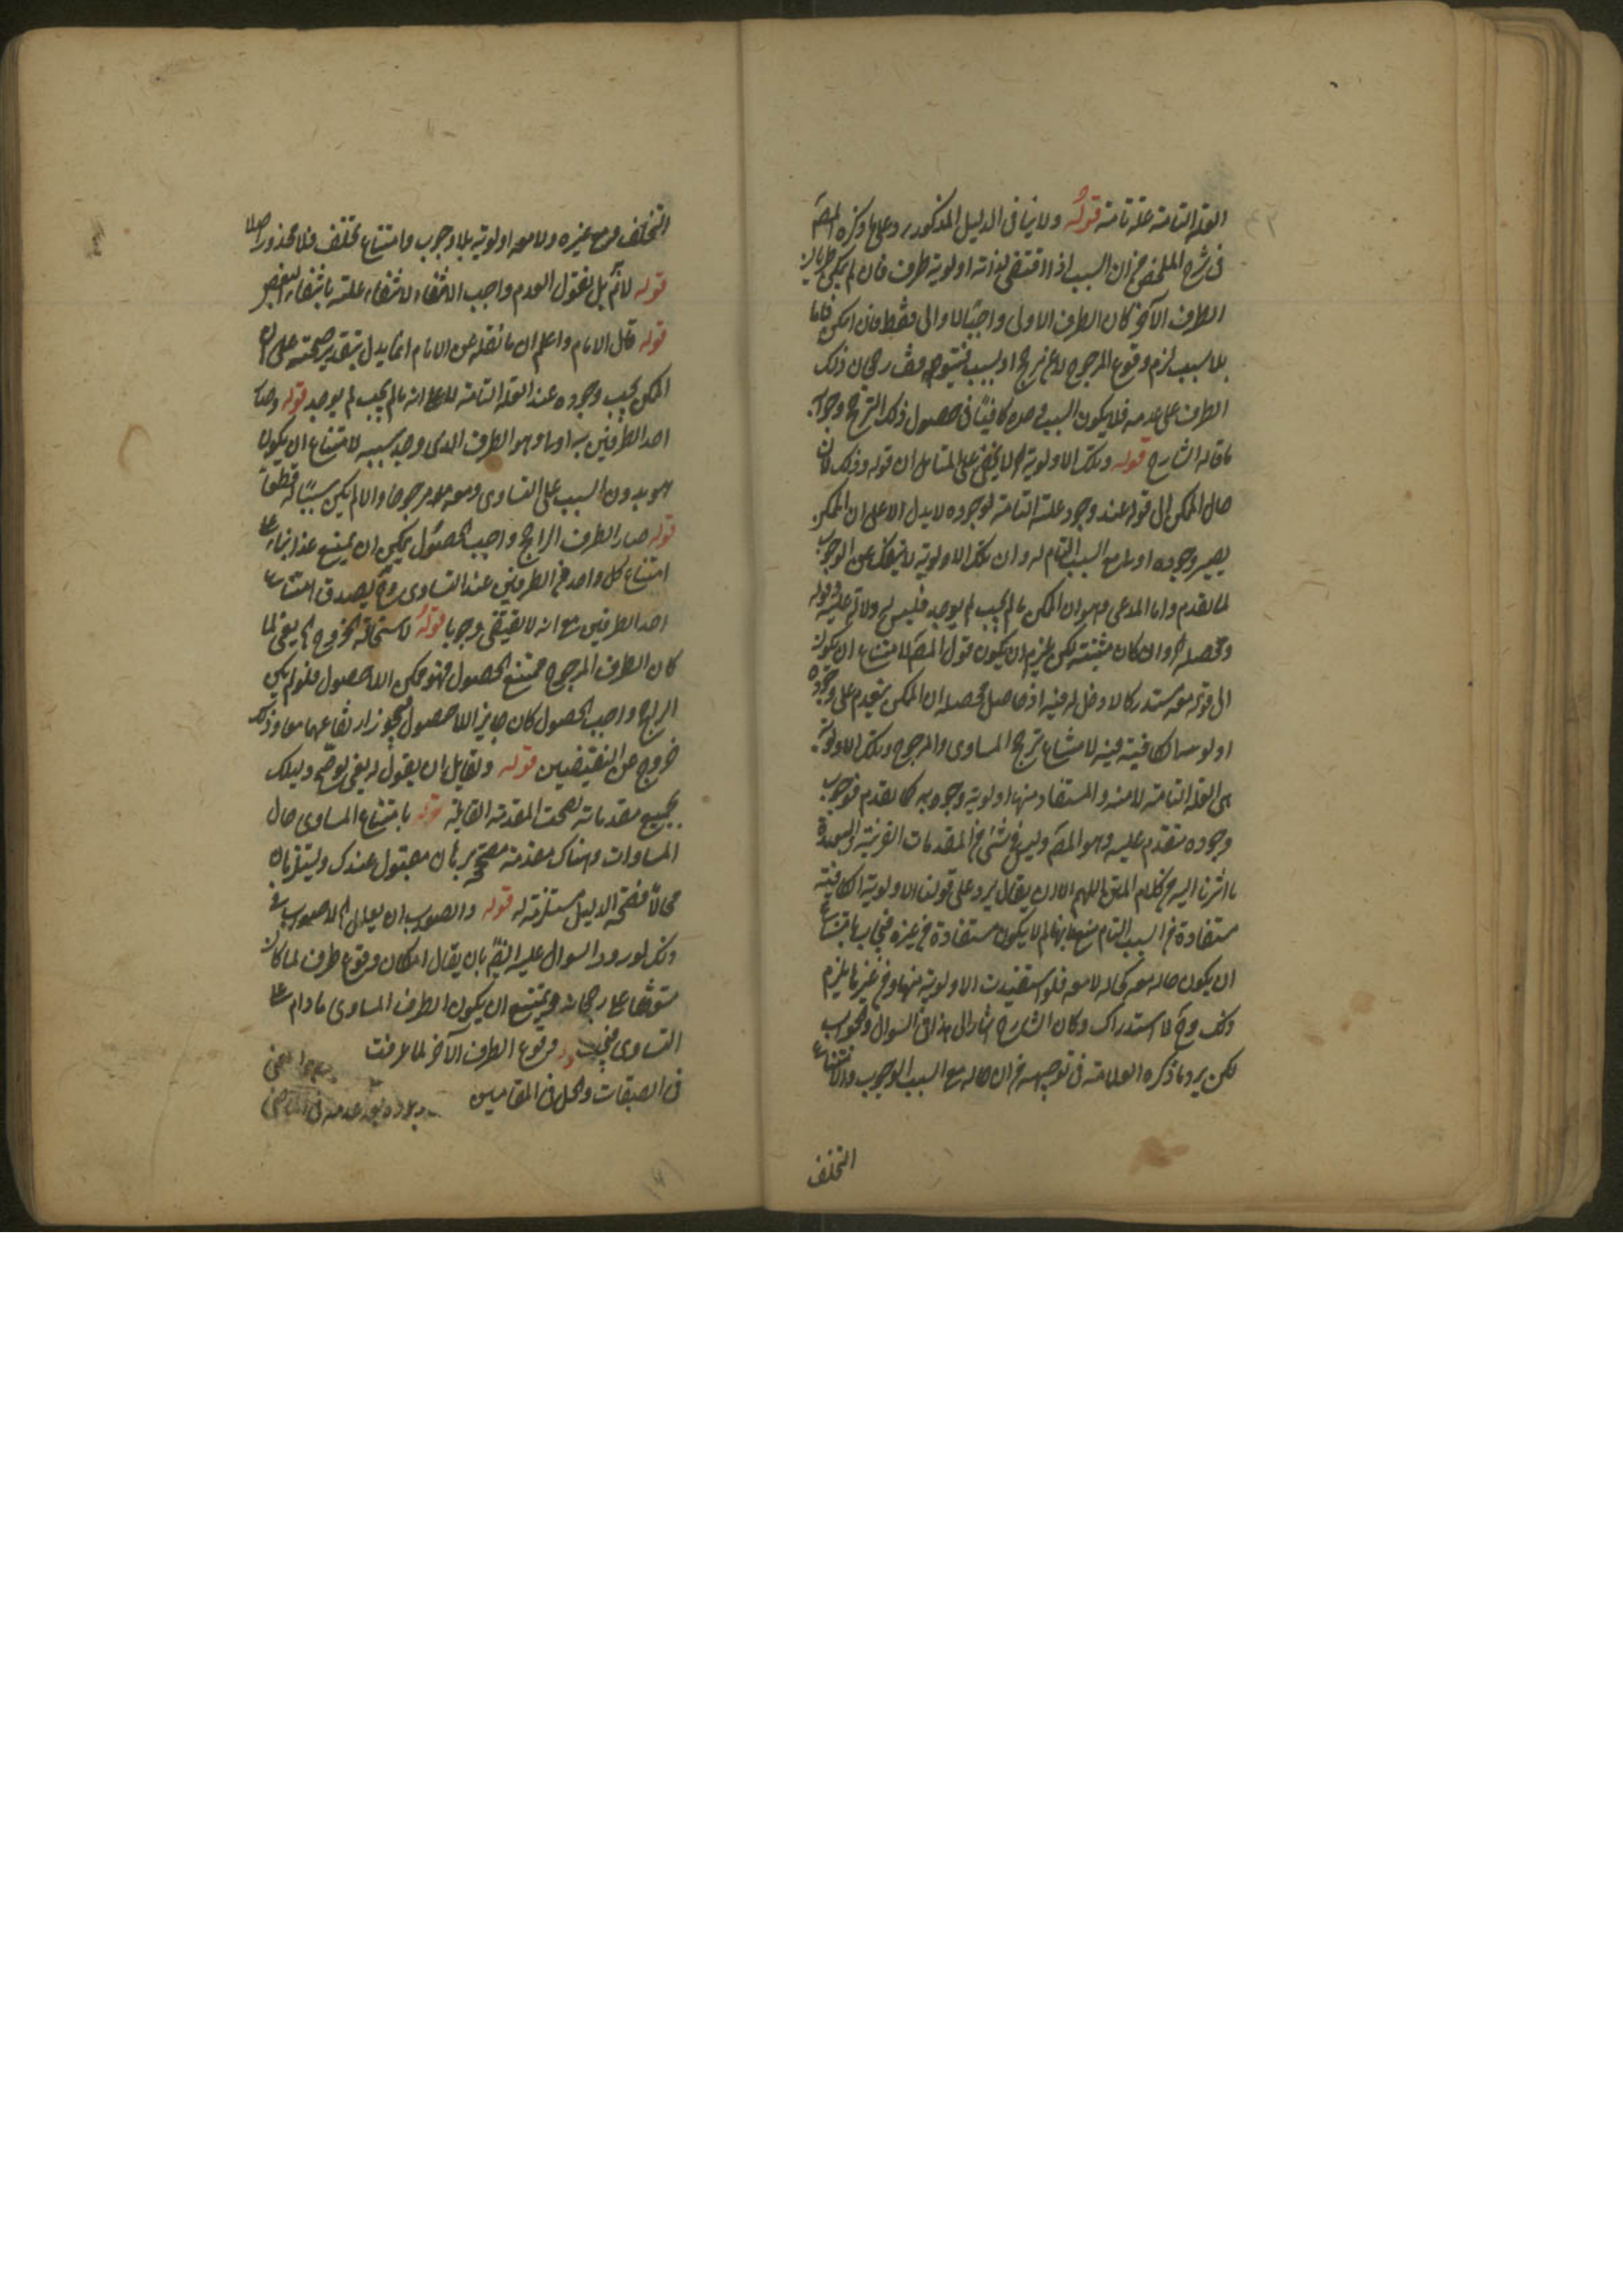 العلة التامة علة تامة قوله ولا ينافى الدليل المذكور وعلى ما ذكره المص
فى شرح الملخص من ان السبب اذا اقتضى لذاته اولوية طرف فان لم يمكن طريان
الطرف الآخر كان الطرف الاولى واجبا لا اولى فقط وان امكن فاما
بلا سبب لزم وقوع المرجوح لا عن مرجح او بسبب فيتوقف رجحان ذلك
الطرف على عدمه فلا يكون السبب وحده كافيا فى حصول ذلك الترجح وجوابه
ما قاله الشارح قوله وتلك الاولوية لا يخفى على المتأمل ان قوله وذلك لان
حال الممكن الى قوله عند وجود علته التامة لوجوده لا يدل الا على ان الممكن
يصير وجوده اولى مع السبب التام له وان تلك الاولوية لا ينفك عن الوجوب
لما تقدم واما المدعى وهو ان الممكن ما لم يجب لم يوجد فليس
ومحصله وان كان مثبتته لكن يلزم ان يكون قول المص لامتناع ان يكون
الى قوله معه مستدركا لا دخل له فيه اذ حاصل محصله ان الممكن يتقدم على وجوده
اولوية الكافية فيه لامتناع ترجح المساوى والمرجوح وتلك الاولوية
هى العلة التامة لا منه والمستفاد منها اولوية وجوبه كما تقدم فوجوب
وجوده متقدم عليه وهو المص وليس شئ من المقدمات القريبة والبعيدة
ما اشرنا اليه من كلام المتن اللهم الا ان يقال يرد على قولنا الاولوية الكافية
مستفادة من السبب التام منعا بانه لم لا يكون مستفادة من غيره فيجاب بامتناع
ان يكون حاله معه كحاله لا معه فلو استفيدت الاولوية منها ومن غيرها يلزم
ذلك وح لا استدراك وكان الشارح اشار الى هذا فى السوال والجواب
لكن يرد ما ذكره العلامة فى توجيهه من ان حاله مع السبب الوجوب والامتناع
التخلف
التخلف ومع غيره ولا معه اولوية بلا وجوب وامتناع تخلف فلا محذور اصلا
قوله لا نم بل نقول العدم واجب الانتفاء لانتفاء علته بانتفاء بعض
قوله قال الامام واعلم ان ما نقله عن الامام انما يدل بتقدير صحته على ان
الممكن يجب وجوده عند العلة التامة لا على انه ما لم يجب لم يوجد قوله وصار
احد الطرفين به اولى وهو الطرف الذى وجد سببه لامتناع ان يكون
هو بدون السبب على التساوى ومعه مرجوحا والا لم يكن سببا له قطعا
قوله صار الطرف الراجح واجب الحصول يمكن ان يمنع هذا بناء على
امتناع كل واحد من الطرفين عند التساوى وح يصدق امتناع
احد الطرفين مع انه لا يقتضى وجوبا قوله لاستحالة الخروج يعنى لما
كان الطرف المرجوح ممتنع الحصول فهو ممكن اللاحصول فلو لم يكن
الراجح واجب الحصول كان جايز اللاحصول فيجوز ارتفاعهما معا وذلك
خروج عن النقيضين قوله ولقايل ان يقول يعنى لو صح دليلك
بجميع مقدماته لصحت المقدمة القايلة قوله بامتناع المساوى حال
المساوات وهناك مقدمة صحيحة برهان مقبول عندك ويستلزمان
محالا فصحة الدليل مستلزمة له قوله والصواب ان يعلل
ذلك لورود السوال عليه ايضا بان يقال امكان وقوع طرف لما كان
متوقفا على رجحانه فيمتنع ان يكون الطرف المساوى ما دام على
التساوى فيجب وقوع الطرف الآخر لما عرفت
فى الصفات والحل فى المقامين